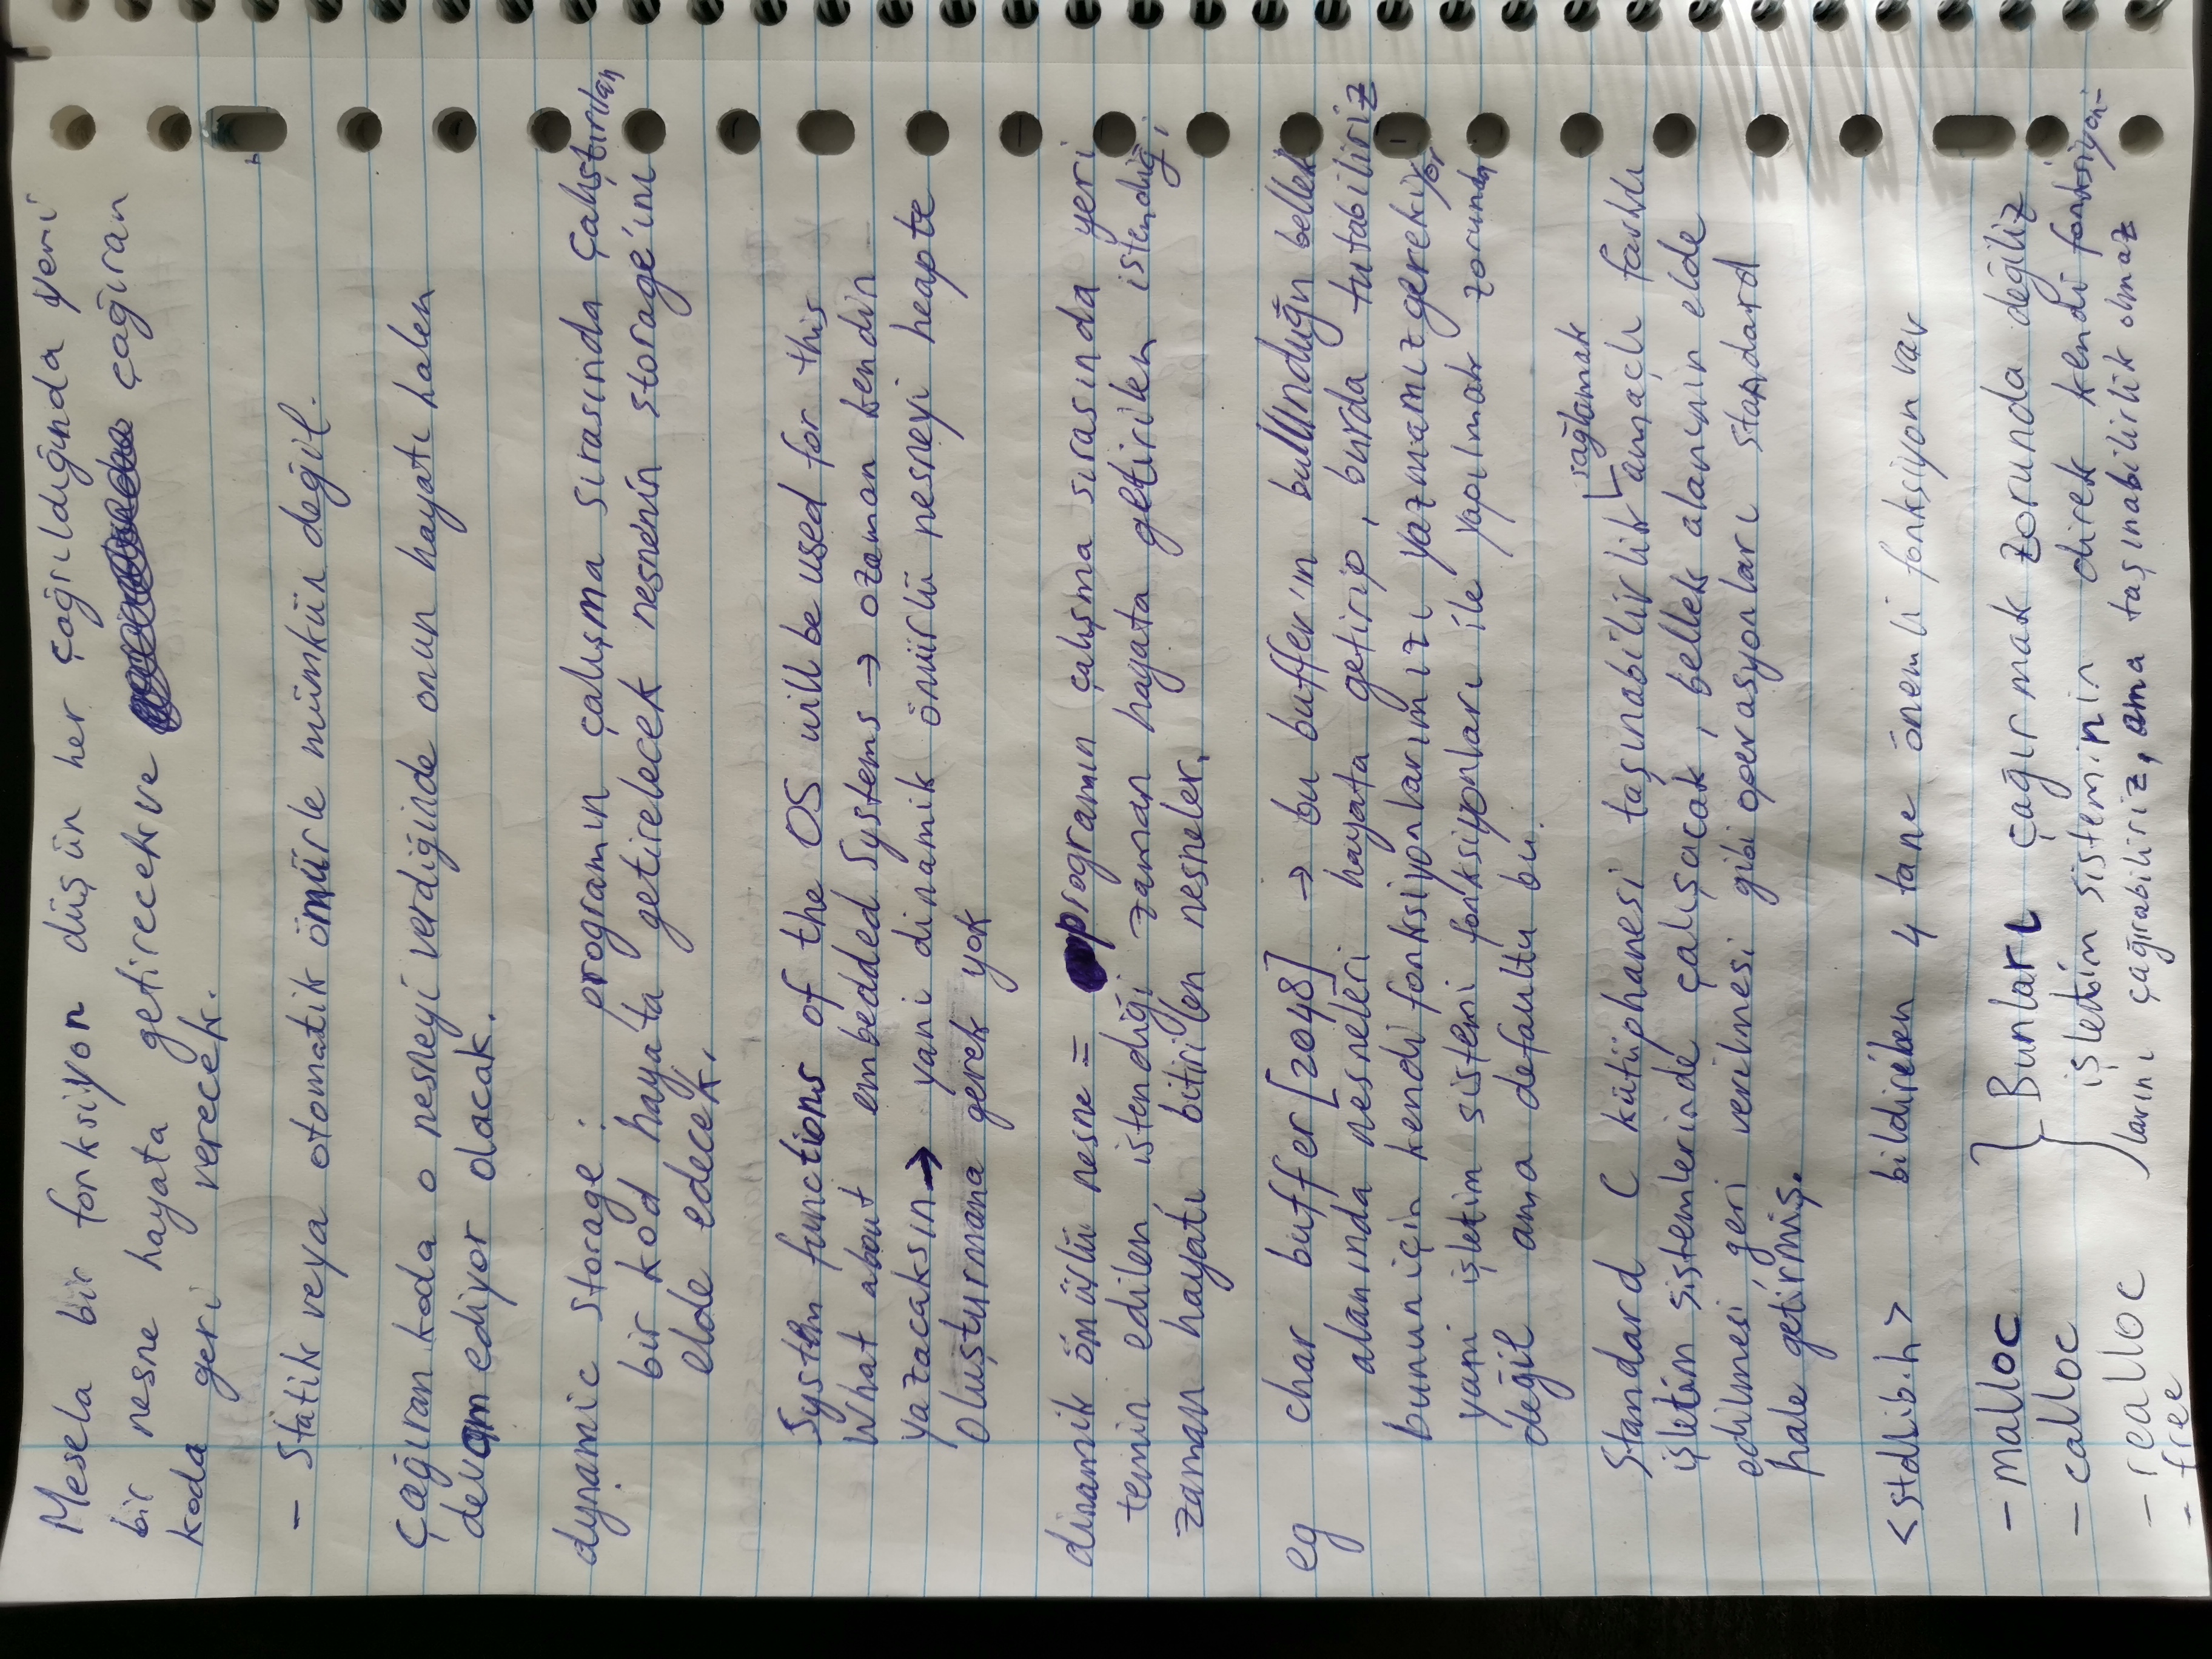 Mesela bir fonksiyon düşün her çağrıldığında yeni
bir nesne hayata getirecek ve çağıran
koda geri verecek.
- Statik veya otomatik ömürle mümkün değil.
Çağıran koda o nesneyi verdiğinde onun hayatı halen
devam ediyor olacak.
dynamic storage : programın çalışma sırasında çalıştırılan
bir kod hayata getirelecek nesnenin storage'ını
elde edecek.
System functions of the OS will be used for this
What about embedded systems → ozaman kendin
yazacaksın → yani dinamik ömürlü nesneyi heapte
oluşturmana gerek yok
dinamik ömürlü nesne = programın çalışma sırasında yeri
temin edilen, istendiği zaman hayata getirilen istendiği
zaman hayatı bitirilen nesneler.
eg char buffer[2048] → bu buffer'ın bulunduğu bellek
alanında nesneleri hayata getirip, burda tutabiliriz
bunun için kendi fonksiyonlarımızı yazmamız gerekiyor
yani işletim sistemi fonksiyonları ile yapılmak zorunda
değil ama defaultu bu.
sağlamak
Standard C kütüphanesi taşınabilirlik amaçlı farklı
işletim sistemlerinde çalışacak, bellek alanının elde
edilmesi, geri verilmesi gibi operasyonları standard
hale getirmiş.
<stdlib.h> bildirilen 4 tane önemli fonksiyon var
- malloc } Bunları çağırmak zorunda değiliz
- calloc işletim sisteminin direk kendi fonksiyon-
- realloc larını çağırabiliriz, ama taşınabilirlik olmaz
- free